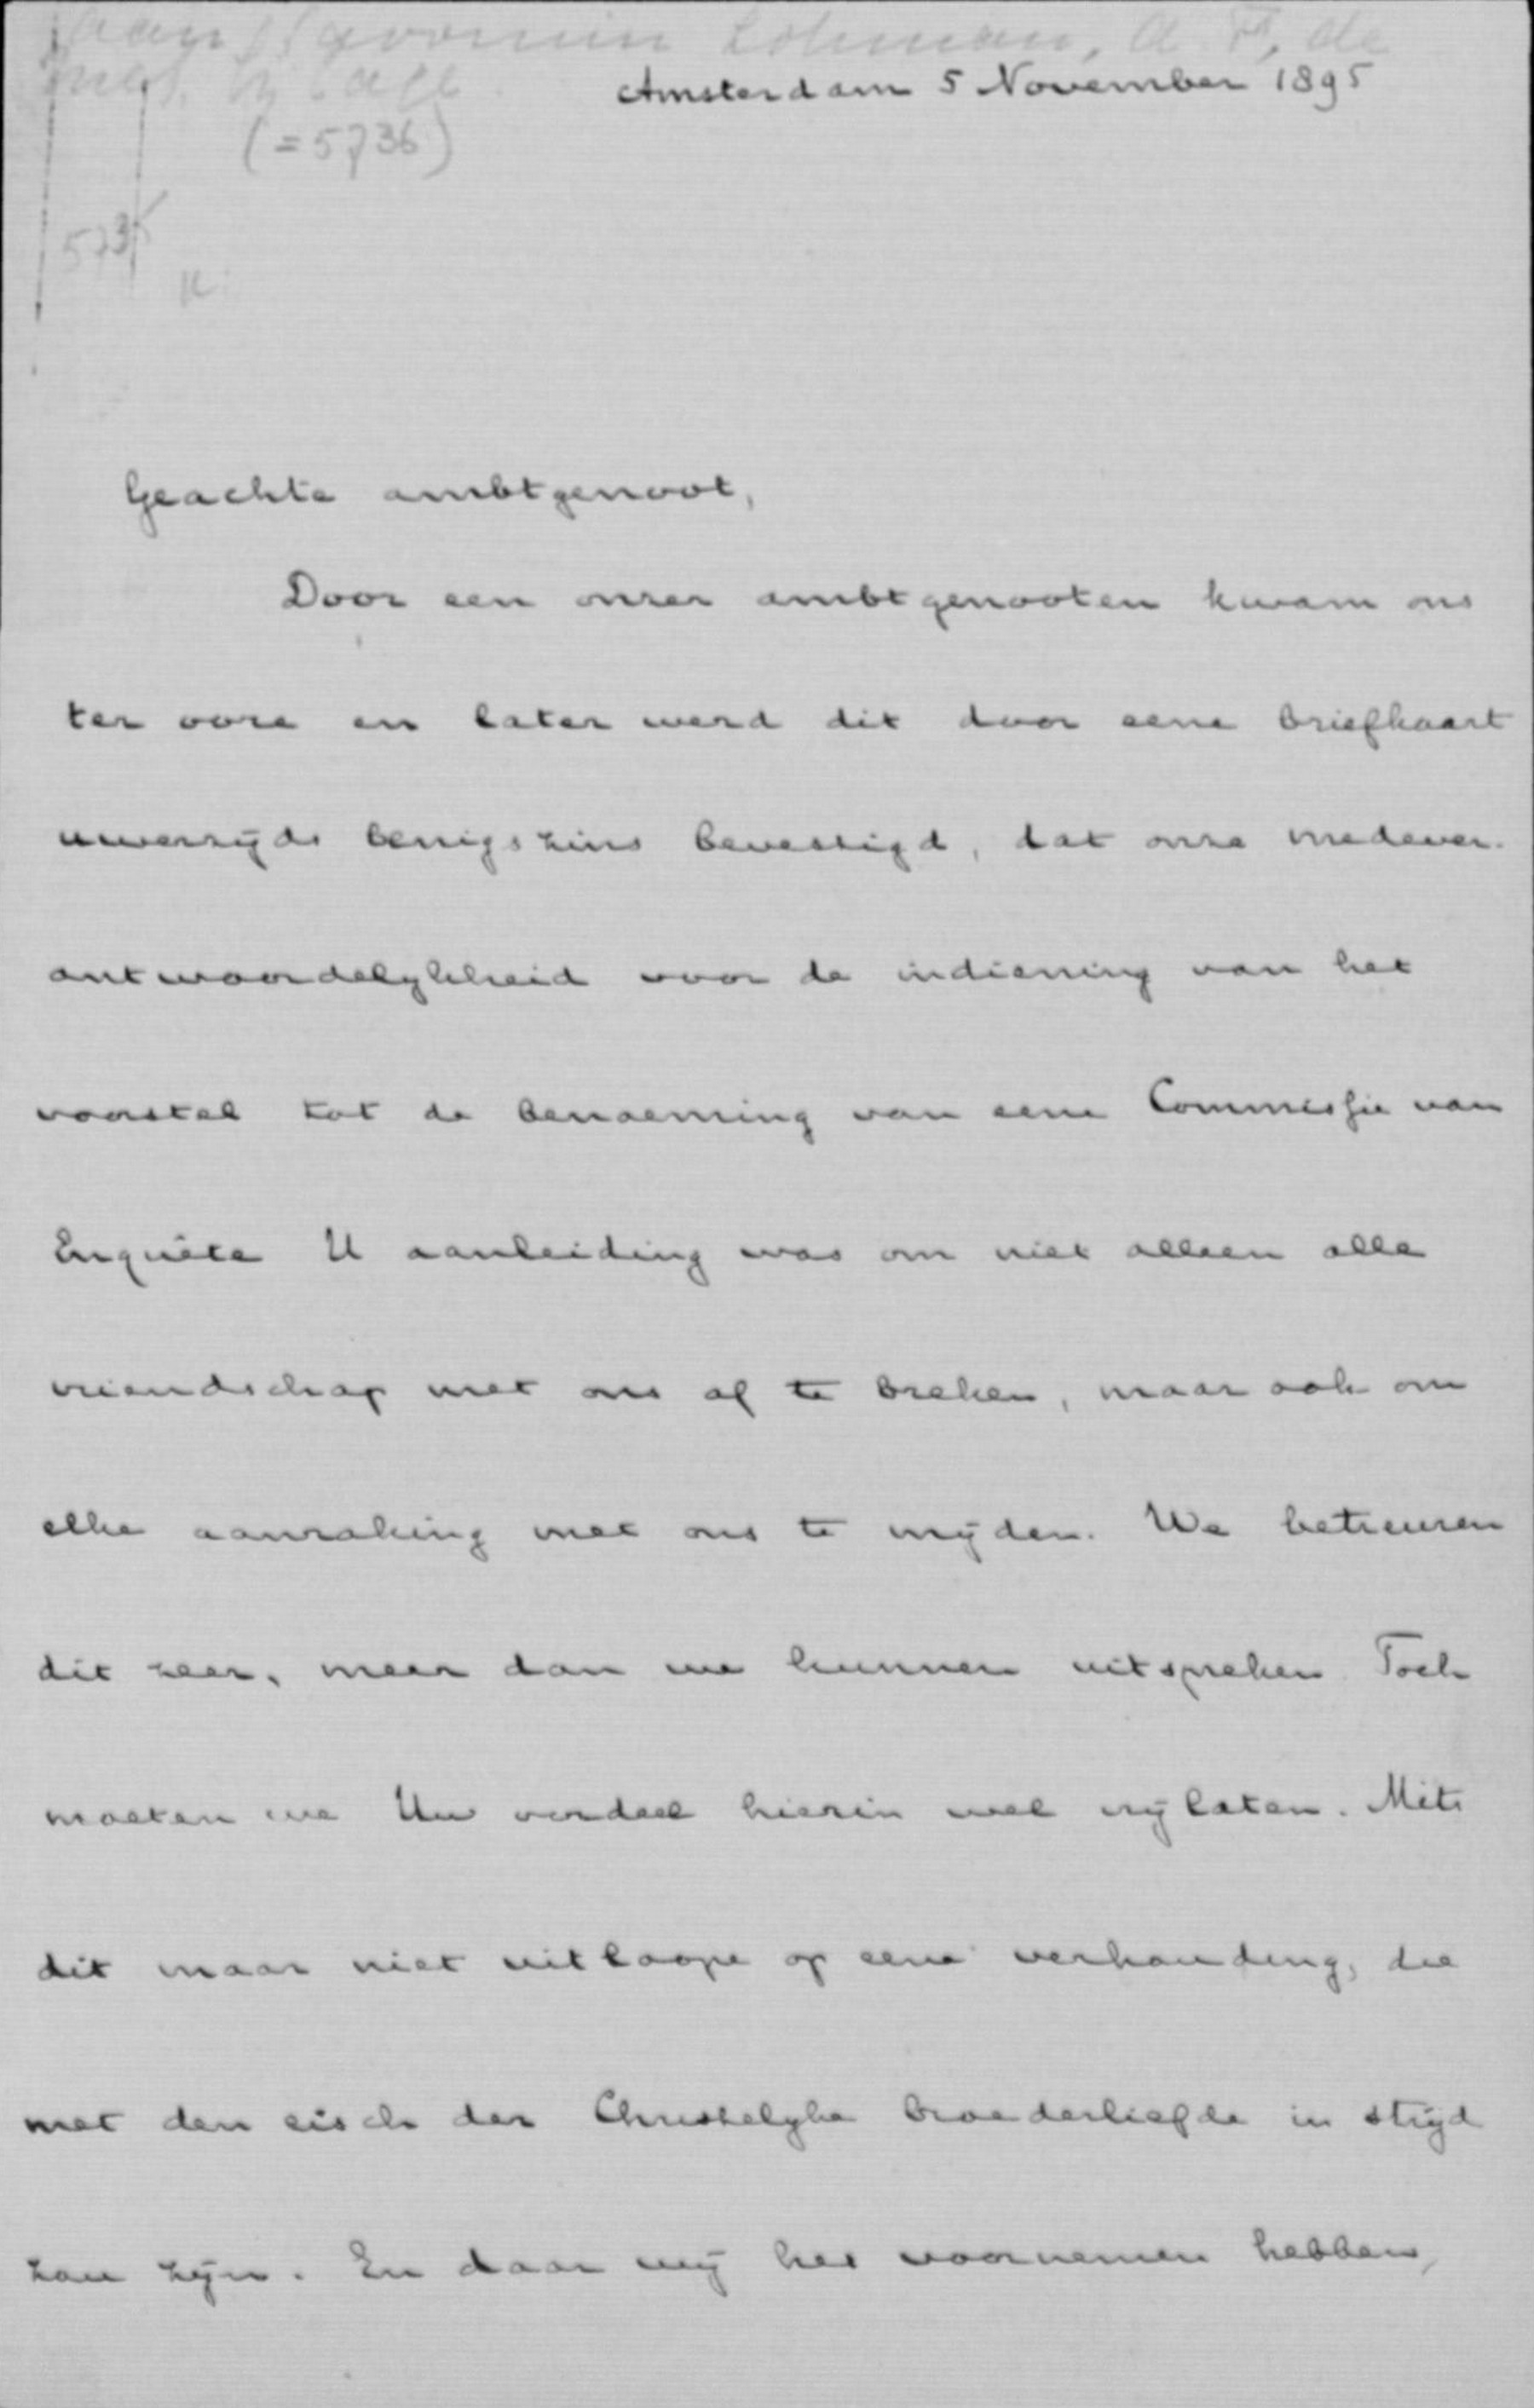 aan Savornin Lohman, A. F. de
Amsterdam 5 November 1895
(=5736)
5735
K.
Geachte ambtgenoot,
Door een onzer ambtgenooten kwam ons
ter oore en later werd dit door eene briefkaart
uwerzijds eenigszins bevestigd, dat onze medever-
antwoordelykheid voor de indiening van het
voorstel tot de benoeming van eene Commissie van
Enquête U aanleiding was om niet alleen alle
vriendschap met ons af te breken, maar ook om
elke aanraking met ons te myden. We betreuren
dit zeer, meer dan we kunnen uitspreken. Toch
moeten we Uw oordeel hierin wel vrij laten. Mits
dit maar niet uitloope op eene verhouding, die
met den eisch der Christelyke broederliefde in stryd
zou zijn. En daar wy het voornemen hebben,